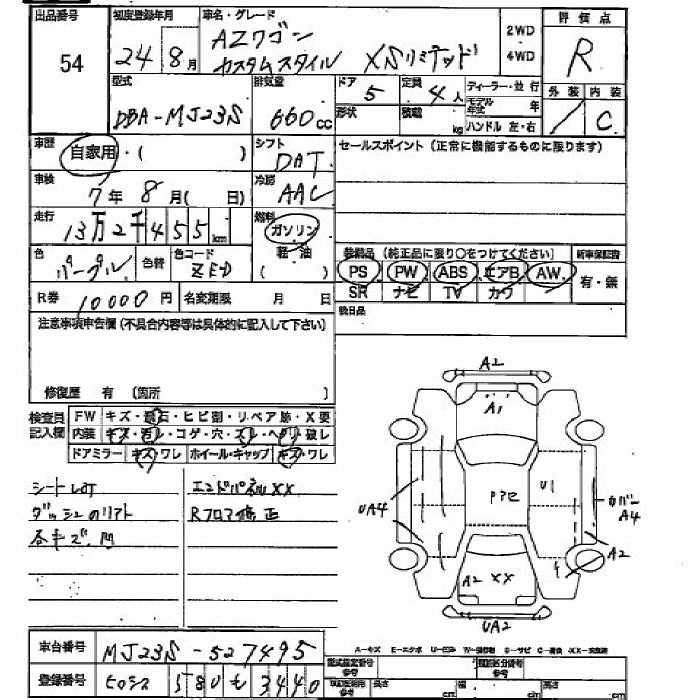 出品番号 初度登録年月 車名・グレード 評価点
54 24年8月 AZワゴン カスタムスタイル XSリミテッド 2WD・4WD R
型式 排気量 ドア 定員 ディーラー・並行 外装 内装
DBA-MJ23S 660cc 5 4人 モデル年式 年 C
形状 積載 kg ハンドル 左・右
車歴 自家用・( ) シフト DAT セールスポイント(正常に機能するものに限ります)
車検 7年8月( 日) 冷房 AAC
走行 13万2千455km 燃料 ガソリン 軽・油 ( )
色 パープル 色替 色コード ZED 装備品(純正品に限り○をつけてください) 新車保証書
PS PW ABS エアB AW 有・無
SR ナビ TV カワ
R券 10000円 名変期限 月 日 後日品
注意事項申告欄(不具合内容等は具体的に記入して下さい)
修復歴 有 〔箇所 〕
検査員記入欄 FW キズ・飛石・ヒビ割・リペア跡・X要
内装 キズ・汚レ・コゲ・穴・スレ・ヘタリ・破レ
ドアミラー キズ・ワレ ホイール・キャップ キズ・ワレ
シートL.O.T エンドパネルXX
ダッシュのリフト Rフロア修正
各キズ、凹
A2
A1
UA4 アセ U1 カバー A4
A2
A2 XX
UA2
A-キズ E-エクボ U-凹み
車台番号 MJ23S-527495 型式指定番号 参考 類別区分番号 参考
登録番号 580 3440 長さ cm 幅 cm cm